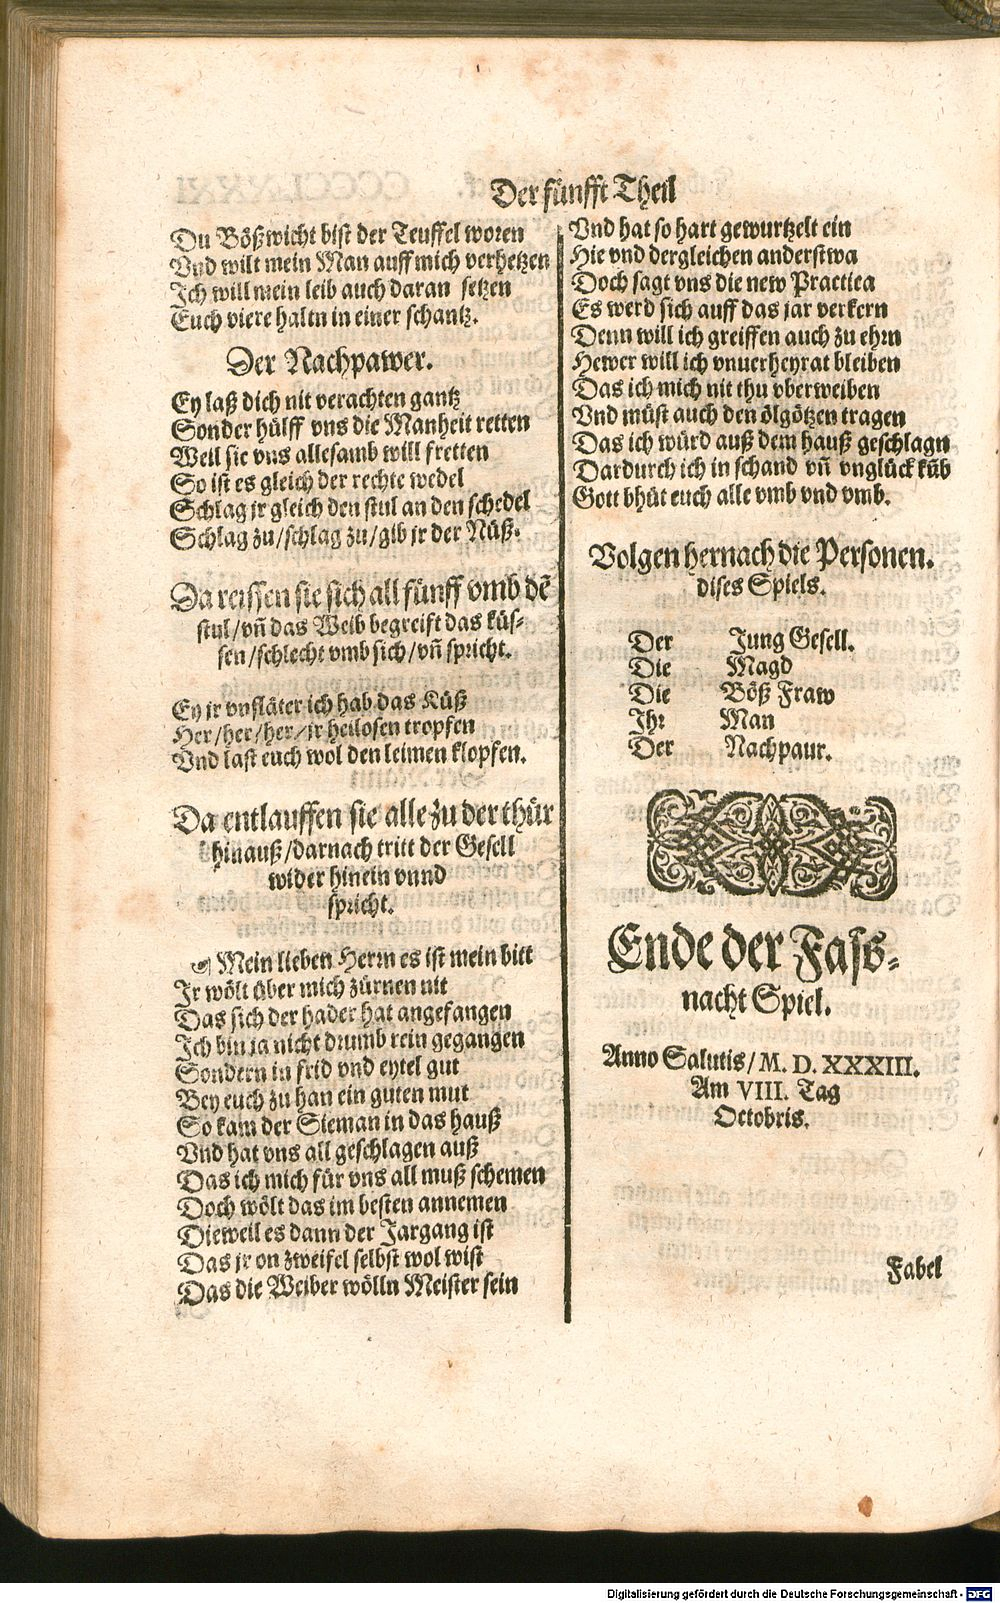 Der fünfft Theil
Du Bößwicht bist der Teuffel woren
Vnd wilt mein Man auff mich verhetzen
Ich will mein leib auch daran setzen
Euch viere haltn in einer schantz.
Der Nachpawer.
Ey laß dich nit verachten gantz
Sonder hülff vns die Manheit retten
Weil sie vns allesamb will fretten
So ist es gleich der rechte wedel
Schlag jr gleich den stul an den schedel
Schlag zu/schlag zu/gib jr der Nüß.
Da reissen sie sich all fünff vmb dē
stul/vn̄ das Weib begreifft das küs-
sen/schlecht vmb sich/vn̄ spricht.
Ey jr vnfläter ich hab das Küß
Her/her/her/jr heilosen tropfen
Vnd last euch wol den leimen klopfen.
Da entlauffen sie alle zu der thür
hinauß/darnach tritt der Gesell
wider hinein vnnd
spricht.
Mein lieben Herrn es ist mein bitt
Ir wölt über mich zürnen nit
Das sich der hader hat angefangen
Ich bin ja nicht drumb rein gegangen
Sondern in frid vnd eytel gut
Bey euch zu han ein guten mut
So kam der Sieman in das hauß
Vnd hat vns all geschlagen auß
Das ich mich für vns all muß schemen
Doch wölt das im besten annemen
Dieweil es dann der Jargang ist
Das jr on zweifel selbst wol wist
Das die Weiber wölln Meister sein
Vnd hat so hart gewurtzelt ein
Hie vnd dergleichen anderstwa
Doch sagt vns die new Practica
Es werd sich auff das jar verkern
Denn will ich greiffen auch zu ehrn
Hewer will ich vnuerheyrat bleiben
Das ich mich nit thu vberweiben
Vnd müst auch den ölgötzen tragen
Das ich würd auß dem hauß geschlagn
Dardurch ich in schand vn̄ vnglück kūb
Gott bhüt euch alle vmb vnd vmb.
Volgen hernach die Personen.
dises Spiels.
Der Jung Gesell.
Die Magd
Die Böß Fraw
Ihr Man
Der Nachpaur.
Ende der Fass-
nacht Spiel.
Anno Salutis/M. D. XXXIII.
Am VIII. Tag
Octobris.
Fabel
Digitalisierung gefördert durch die Deutsche Forschungsgemeinschaft - DFG